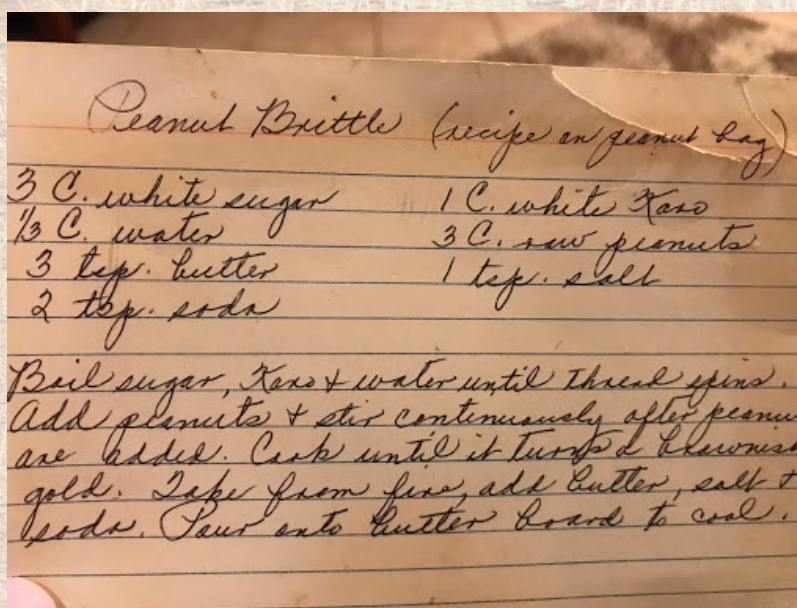 Peanut Brittle (recipe on peanut bag)
3 C. white sugar 1 C. white Karo
1/3 C. water 3 C. raw peanuts
3 tsp. butter 1 tsp. salt
2 tsp. soda
Boil sugar, Karo + water until thread spins.
Add peanuts + stir continuously after peanu
are added. Cook until it turns a brownish
gold. Take from fire, add butter, salt +
soda. Pour onto butter board to cool.